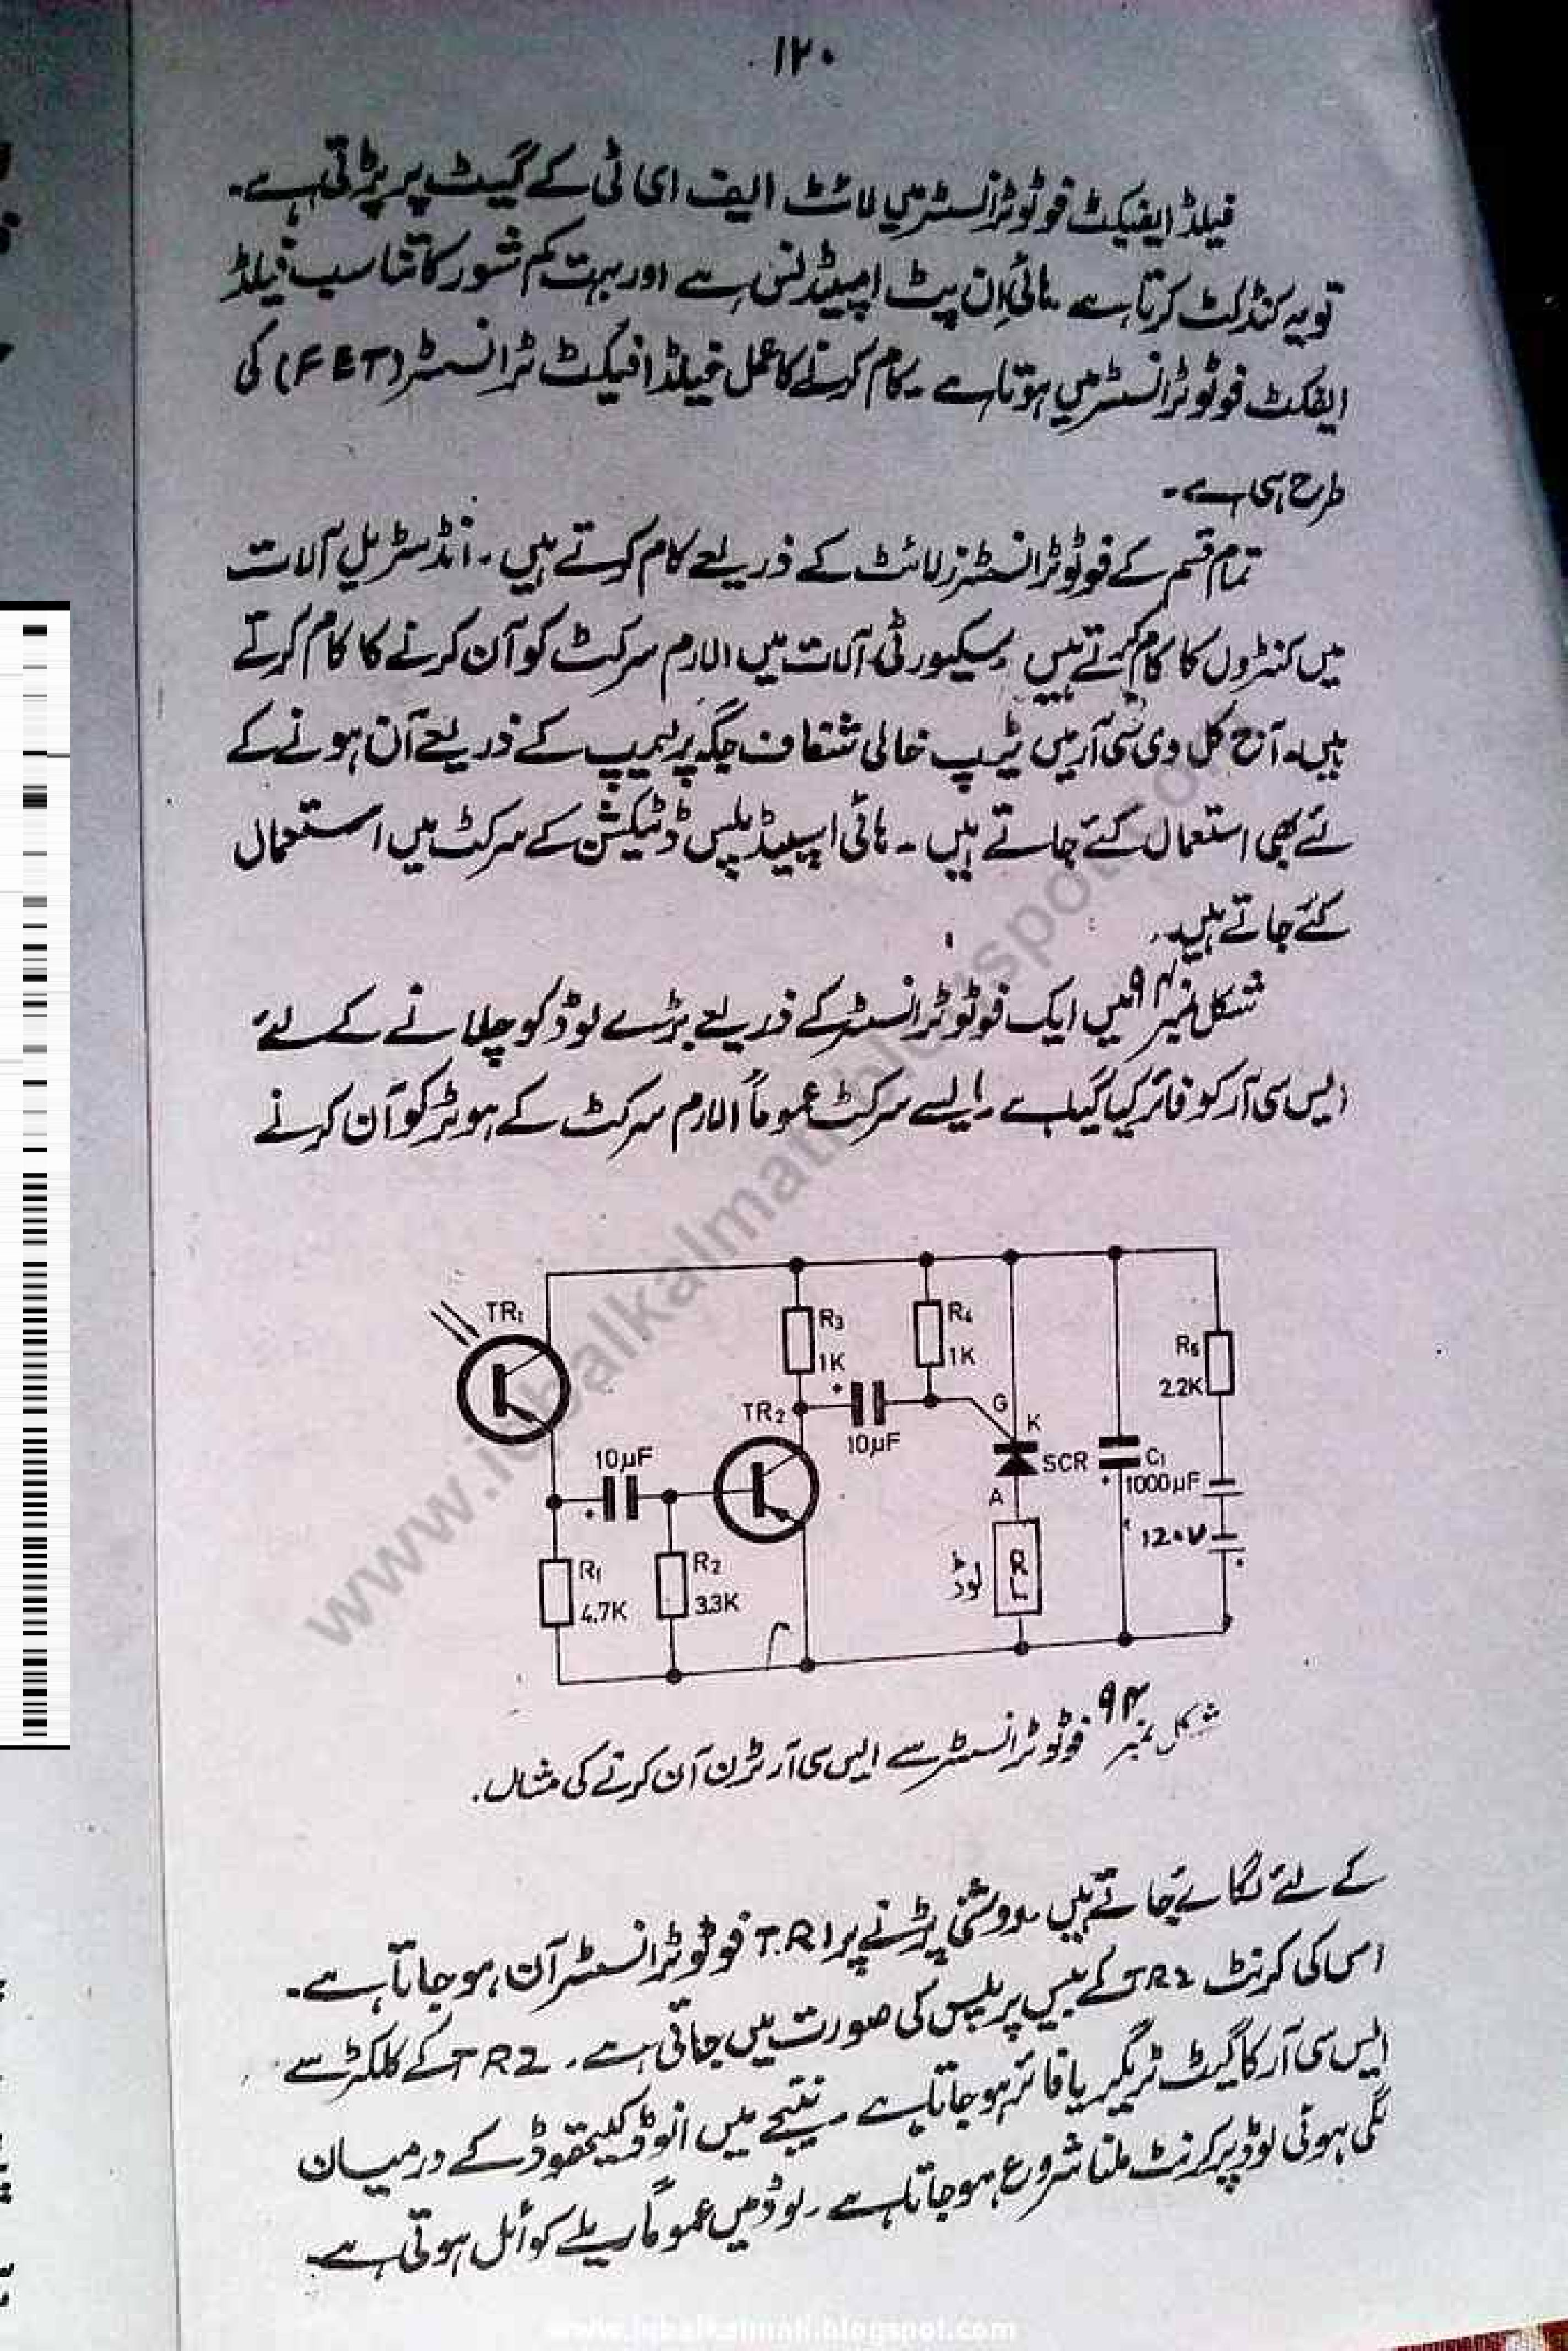 ۱۲۰
فیلڈ ایفیکٹ فوٹو ٹرانسسٹر میں لائٹ ایف ای ٹی کے گیٹ پر پڑتی ہے۔
تو یہ کنڈکٹ کرتا ہے۔ ہائی اِن پٹ امپیڈنس ہے اور بہت کم شور کا تناسب فیلڈ
ایفکٹ فوٹو ٹرانسسٹر میں ہوتا ہے۔ کام کرنے کا عمل فیلڈ افیکٹ ٹرانسسٹر (FET) کی
طرح ہی ہے۔
تمام قسم کے فوٹو ٹرانسسٹرز لائٹ کے ذریعے کام کرتے ہیں۔ انڈسٹریل آلات
میں کنٹرول کا کام کرتے ہیں۔ سیکیورٹی آلات میں الارم سرکٹ کو آن کرنے کا کام کرتے
ہیں۔ آج کل وی سی آر میں ٹیپ خالی شفاف جگہ پر لیمپ کے ذریعے آن ہونے کے
لئے بھی استعمال کئے جاتے ہیں۔ ہائی اسپیڈ پلس ڈٹیکشن کے سرکٹ میں استعمال
کئے جاتے ہیں۔
شکل نمبر ۹۴ میں ایک فوٹو ٹرانسسٹر کے ذریعے بڑے لوڈ کو چلانے کے لئے
ایس سی آر کو فائر کیا گیا ہے۔ ایسے سرکٹ عموماً الارم سرکٹ کے ہوٹر کو آن کرنے
TR1
R3
1K
R4
1K
R5
2.2K
TR2
10µF
G
K
SCR
A
C1
1000µF
120V
10µF
R1
4.7K
R2
3.3K
لوڈ
RL
شکل نمبر ۹۴ فوٹو ٹرانسسٹر سے ایس سی آر ٹرن آن کرنے کی مثال۔
کے لئے لگائے جاتے ہیں۔ روشنی پڑنے پر T.R1 فوٹو ٹرانسسٹر آن ہو جاتا ہے۔
اس کی کرنٹ TR2 کے بیس پر پلس کی صورت میں جاتی ہے۔ TR2 کے کلکٹر سے
ایس سی آر کا گیٹ ٹریگر یا فائر ہو جاتا ہے۔ نتیجے میں انوڈ کیتھوڈ کے درمیان
لگی ہوئی لوڈ پر کرنٹ ملنا شروع ہو جاتا ہے۔ لوڈ میں عموماً ریلے کوائل ہوتی ہے۔
www.iqbalkalmati.blogspot.com
www.iqbalkalmati.blogspot.com